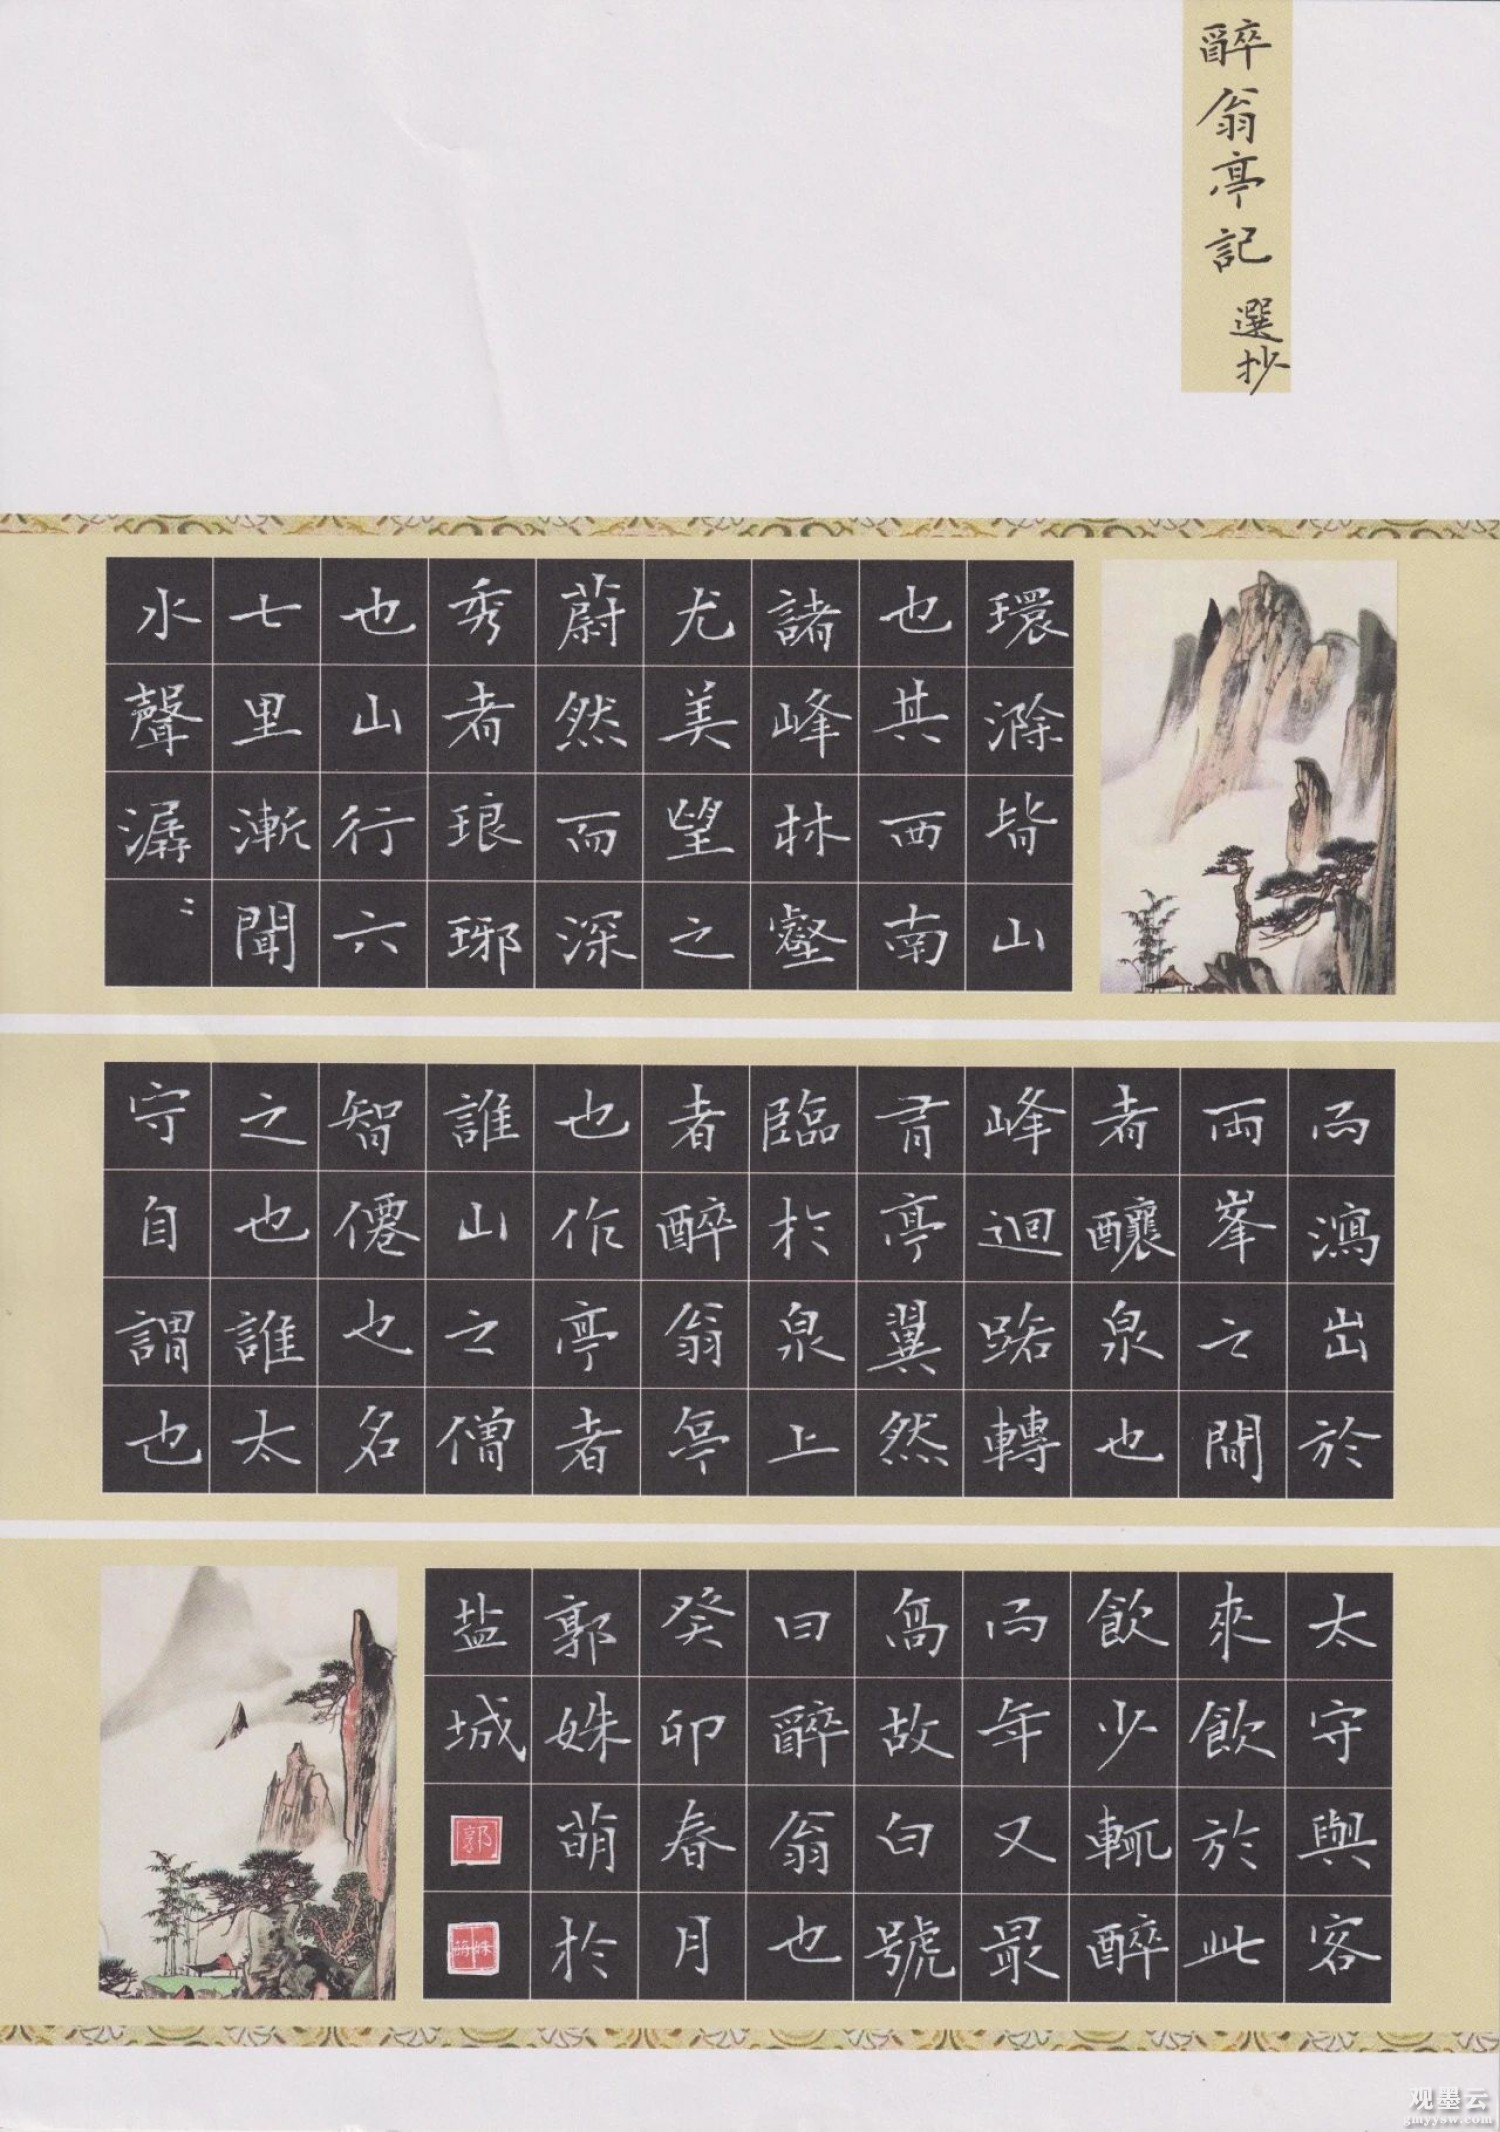 醉翁亭記 選抄
環滁皆山
也其西南
諸峰林壑
尤美望之
蔚然而深
秀者琅琊
也山行六
七里漸聞
水聲潺〻
而瀉出於
兩峯之間
者釀泉也
峰迴路轉
有亭翼然
臨於泉上
者醉翁亭
也作亭者
誰山之僧
智僊也名
之也誰太
守自謂也
太守與客
來飲於此
飲少輒醉
而年又最
高故自號
曰醉翁也
癸卯春月
郭姝萌於
盐城
郭
姝萌
观墨云
gmyysw.com